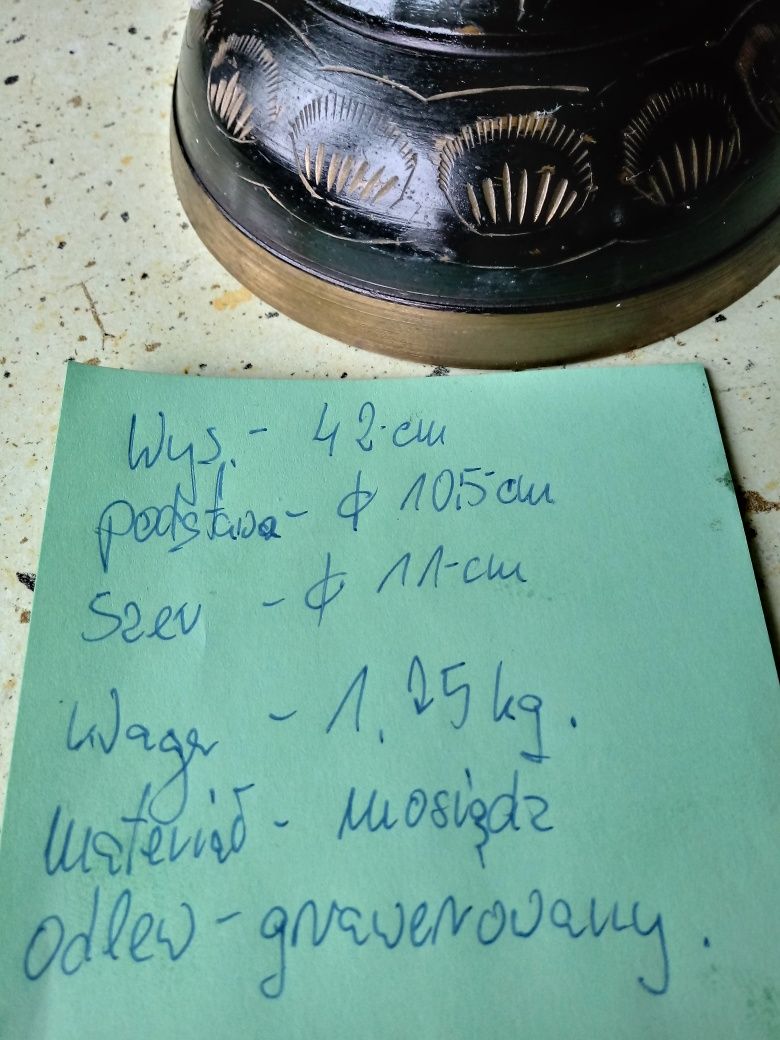 Wys. - 42 cm
podstawa - ϕ 10,5 cm
Szer - ϕ 11 cm
Waga - 1,25 kg.
Materiał - mosiądz
Odlew - grawerowany.